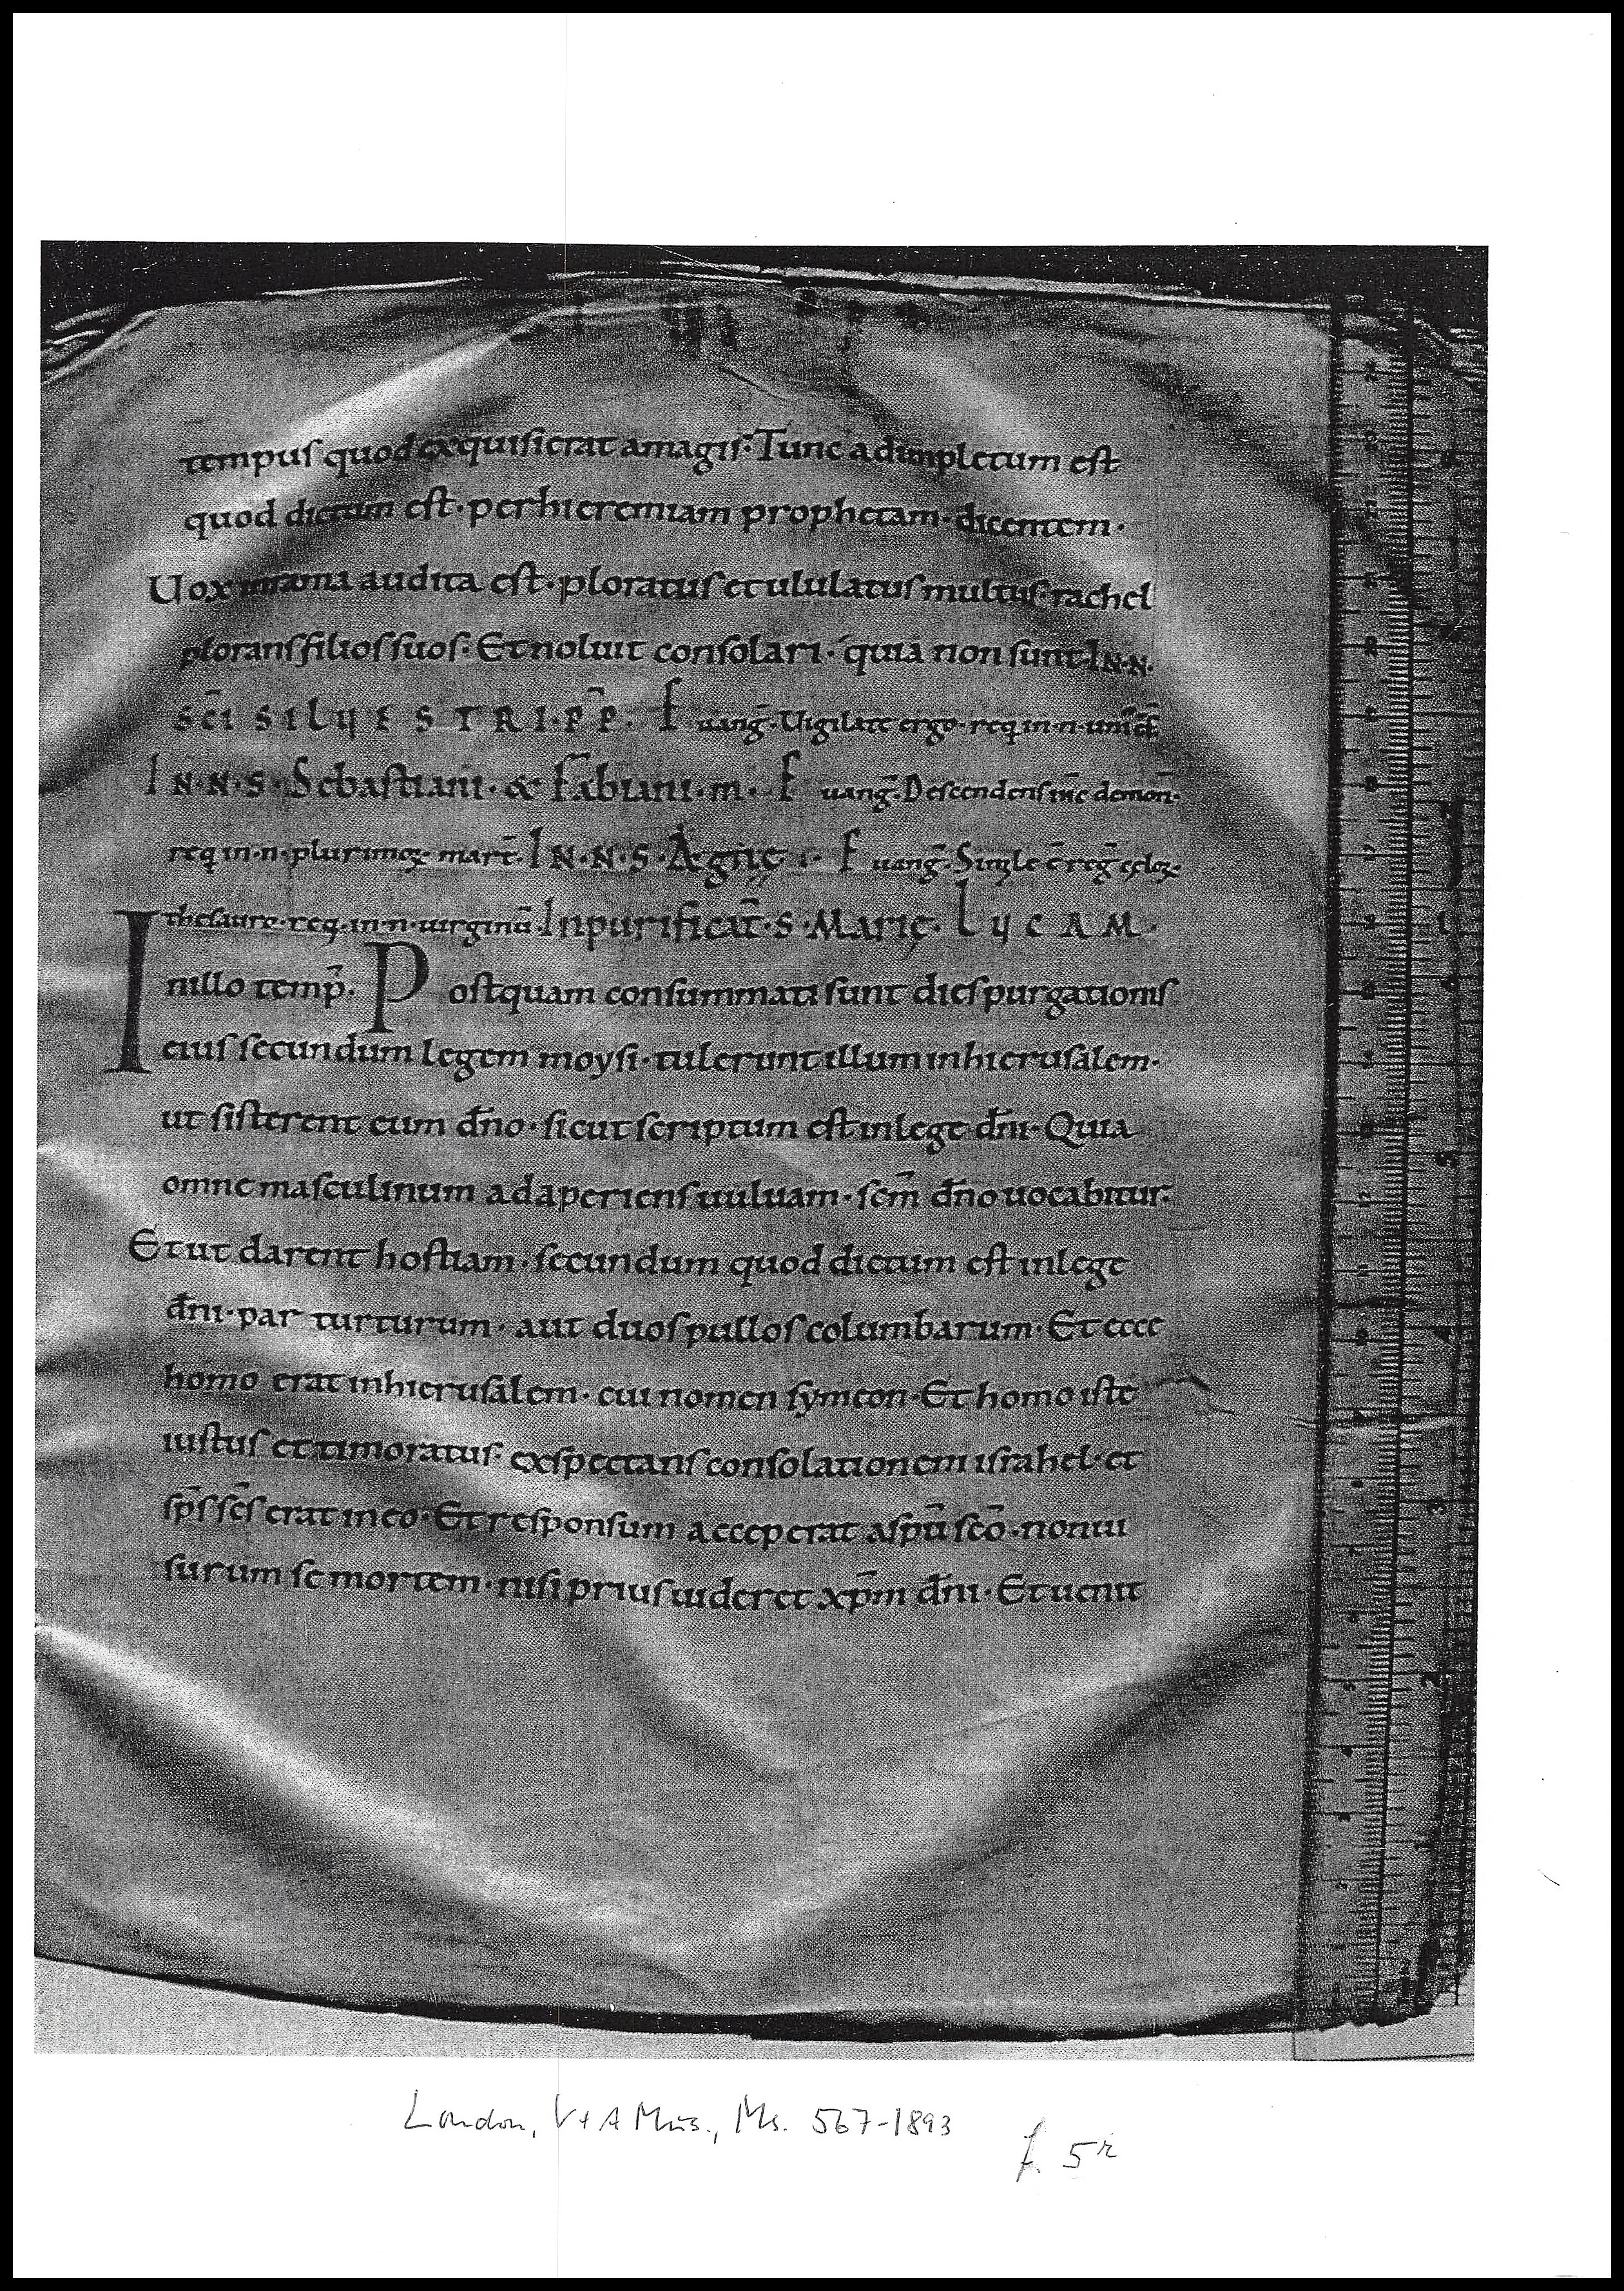 tempus quod exquisierat amagis: Tunc adimpletum est
quod dictum est · per hieremiam prophetam · dicentem ·
Uox inrama audita est · ploratus et ululatus multus · rachel
plorans filios suos : Et noluit consolari · quia non sunt · IN · N ·
SC̄I SILUESTRI · P̄P · Euang̅ · Uigilate ergo · req in · n · uni c̄f
IN · N · S · Sebastiani · & Fabiani · m · Euang̅ · Descendens ih̄c demon̄ ·
req in · n · plurimoꝝ · mart̄ · IN · N · S · Agnę · Euang̅ · Simile ē reg̅ cęloꝝ ·
thesauro · req · in · n · uirginū · In purificat̄ · S · Marię · LUCAM ·
In illo temp̄ · Postquam consummati sunt dies purgationis
eius secundum legem moysi · tulerunt illum inhierusalem ·
ut sisterent eum dn̄o · sicut scriptum est inlege dn̄i · Quia
omne masculinum adaperiens uuluam · sc̄m dn̄o uocabitur :
Et ut darent hostiam · secundum quod dictum est inlege
dn̄i · par turturum · aut duos pullos columbarum · Et ecce
homo erat inhierusalem · cui nomen symeon · Et homo iste
iustus et timoratus · exspectans consolationem israhel · et
sp̄s sc̄s erat ineo · Et responsum acceperat asp̄u sc̄o · non ui
surum se mortem · nisi prius uideret xp̄m dn̄i · Et uenit
London, V + A Mus., Ms. 567-1893
f. 5r